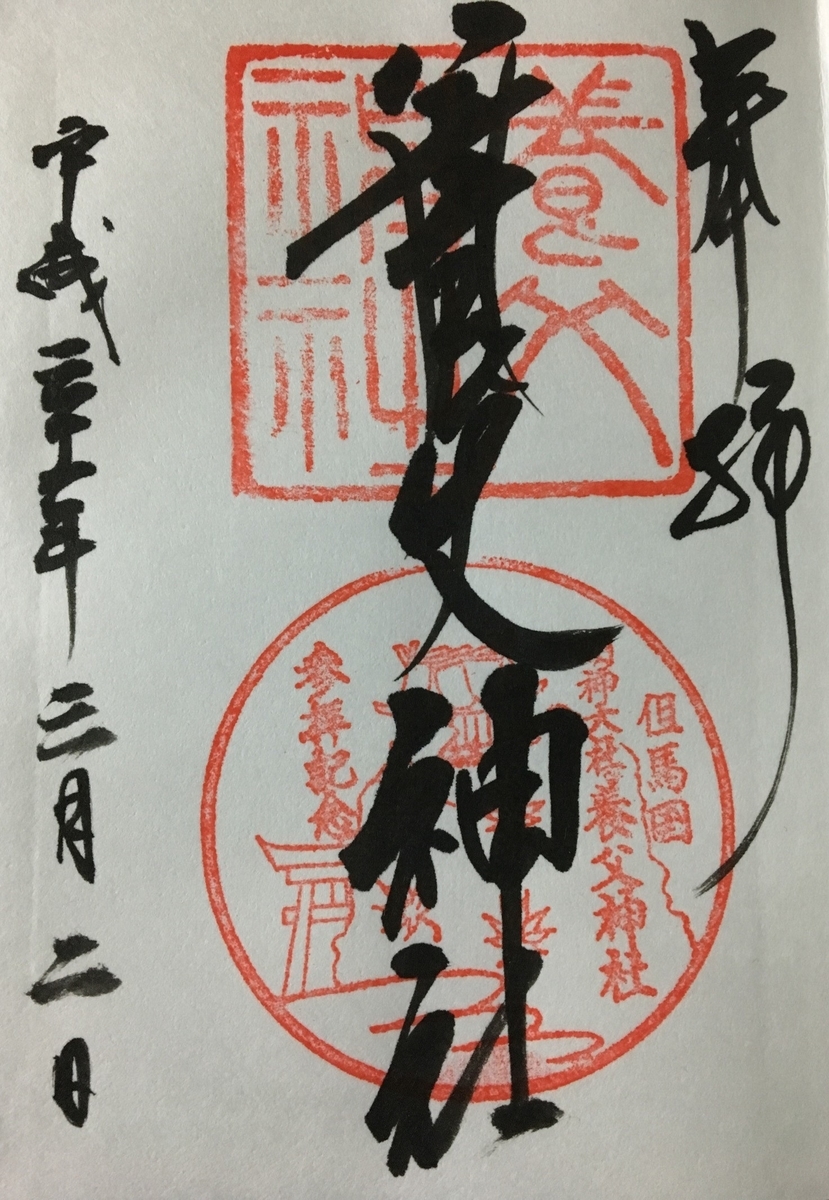 奉拝
養父
神社
養父神社
但馬国
明神大社養父神社
参拝記念
平成三十一年三月二日